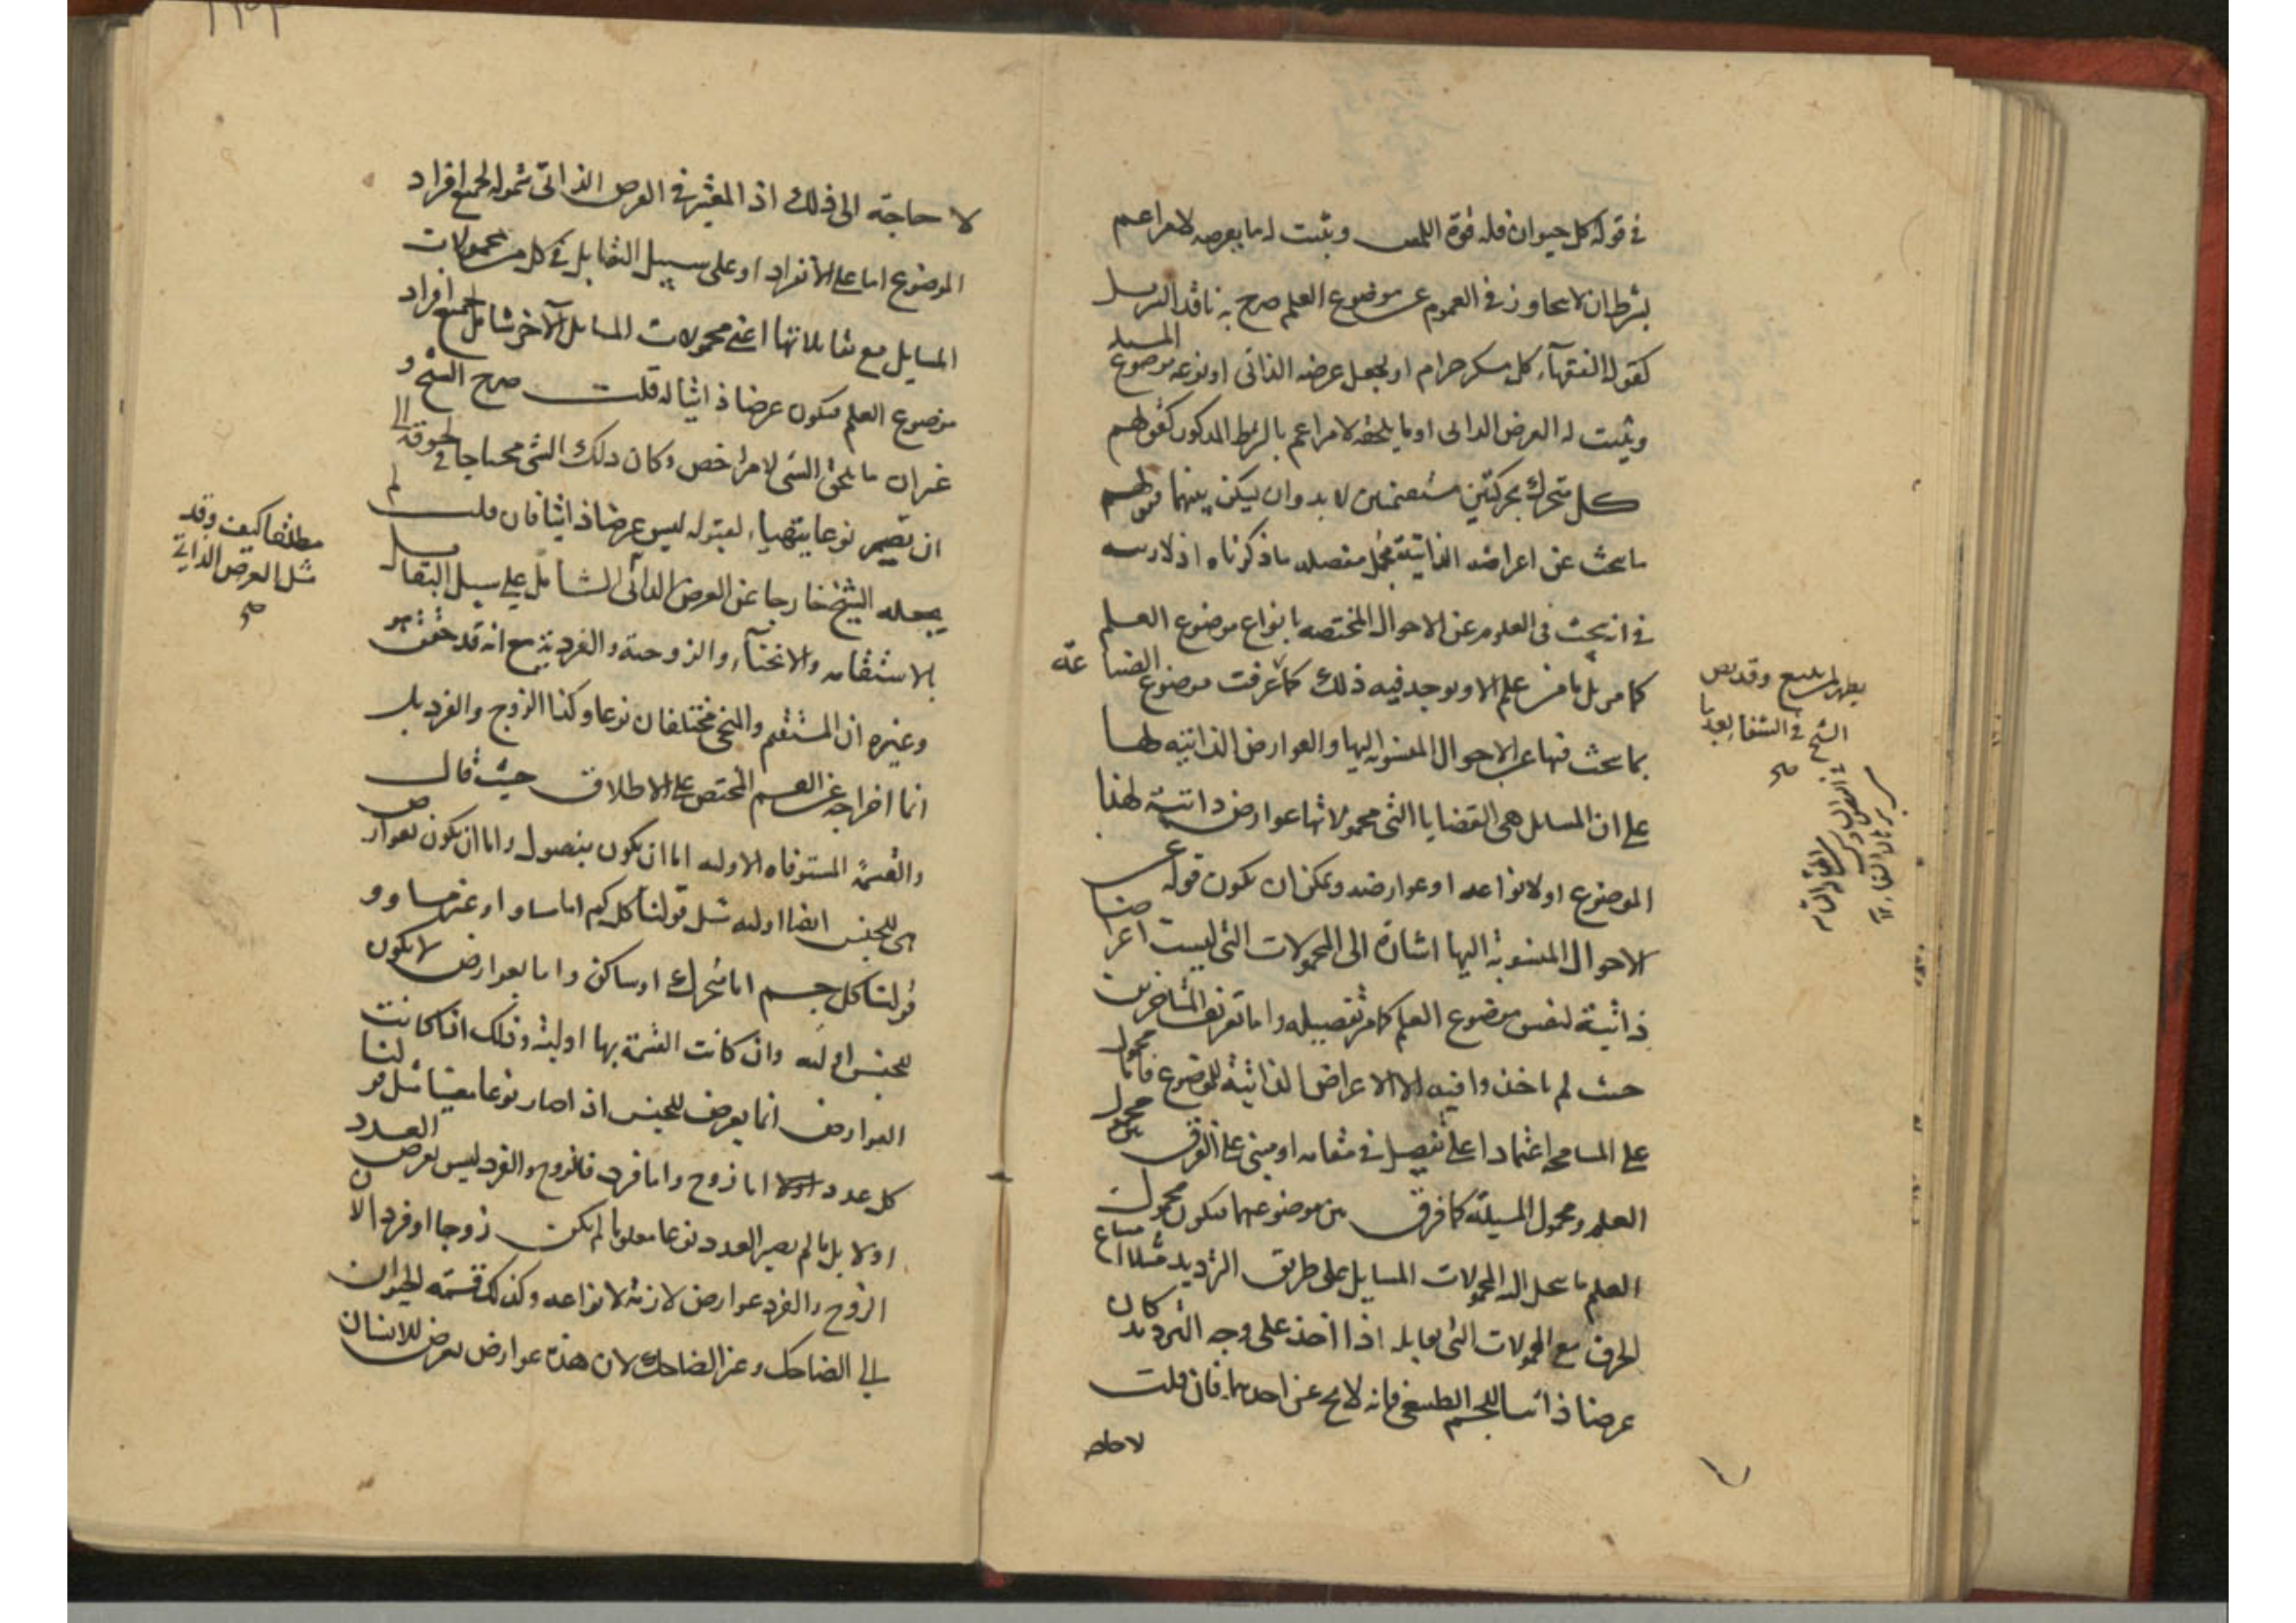 في قوله كل حيوان فله قوة اللمس ويثبت له ما يعرضه لامر اعم
بشرط ان لا يتجاوز في العموم عن موضوع العلم صرح به ناقد التنزيل
كقول الفقهآء كل مسكر حرام او يجعل عرضه الذاتي او نوعه موضوع المسئلة
ويثبت له العرض الذاتي او ما يلحقه لامر اعم بالشرط المذكور كقولهم
كل متحرك بحركتين مستقيمتين لا بد وان يسكن بينهما فقولهم
ما يبحث عن اعراضه الذاتية مجمل مفصله ما ذكرناه اذ لا ريب
في انه يبحث في العلوم عن الاحوال المختصه بانواع موضوع العلم
كما مر بل ما من علم الا ويوجد فيه ذلك كما عرفت موضوع الصناعة
بما يبحث فيها عن الاحوال المنسوبه اليها والعوارض الذاتيه لها
على ان المسائل هي القضايا التي محمولاتها عوارض ذاتية لهذا
الموضوع او لانواعه او عوارضه ويمكن ان يكون قوله عن
الاحوال المنسوبة اليها اشارة الى المحمولات التي ليست اعراضا
ذاتية لنفس موضوع العلم كما مر تفصيله واما تعريف المتأخرين
حيث لم ياخذوا فيه الا الاعراض الذاتية للموضوع فاما محمول
على المسامحه اعتمادا على تفصيل في مقامه او مبني على الفرق بين محمول
العلم ومحمول المسئلة كما فرق بين موضوعيهما فيكون محمول
العلم ما ينحل اليه المحمولات المسايل على طريق الترديد مثلا امتناع
الخرق مع المحمولات التي تقابله اذا اخذ على وجه الترديد كان
عرضا ذاتيا للجسم الطبيعي فانه لا يخ عن احدهما فان قلت
لا حاجة
يظهر للمتتبع وقد نص
الشيخ في الشفا بعد
صح
لا حاجة الى ذلك اذ المعتبر في العرض الذاتي شموله لجميع افراد
الموضوع اما على الانفراد او على سبيل التقابل في كل من محمولات
المسايل مع مقابلاتها اعني محمولات المسايل الآخر شامل لجميع افراد
موضوع العلم فيكون عرضا ذاتيا له قلت صرح الشيخ و
غيره ان ما يلحق الشي لامر اخص وكان ذلك الشي محتاجا في لحوقه الى
ان يصير نوعا يتهيا لقبوله ليس عرضا ذاتيا فان قلت لم
يجعله الشيخ خارجا عن العرض الذاتي الشامل على سبيل التقابل
بالاستقامه والانحنآء والزوجية والفردية مع انه قد حقق هو
وغيره ان المستقيم والمنحني مختلفان نوعا وكذا الزوج والفرد بل
انما اخراجه عن القسم المختص على الاطلاق حيث قال
والقسمة المستوفاه الاوليه اما ان يكون بفصول واما ان يكون بعوارض
هي للجنس ايضا اوليه مثل قولنا كل كم اما مساو او غير مساو و
قولنا كل جسم اما متحرك او ساكن واما بعوارض لا يكون
للجنس اوليه وان كانت القسمة بها اولية وذلك اذا كانت
العوارض انما يعرض للجنس اذا صار نوعا معينا مثل قولنا
كل عدد اما زوج واما فرد فالزوج والفرد ليس يعرض العدد
اولا بل ما لم يصر العدد نوعا معلوما لم يكن زوجا او فردا لان
الزوج والفرد عوارض لازمة لانواعه وكذلك قسمة الحيوان
الى الضاحك وغير الضاحك لان هذه عوارض يعرض للانسان
مطلقا كيف وقد
مثل العرض الذاتي
صح